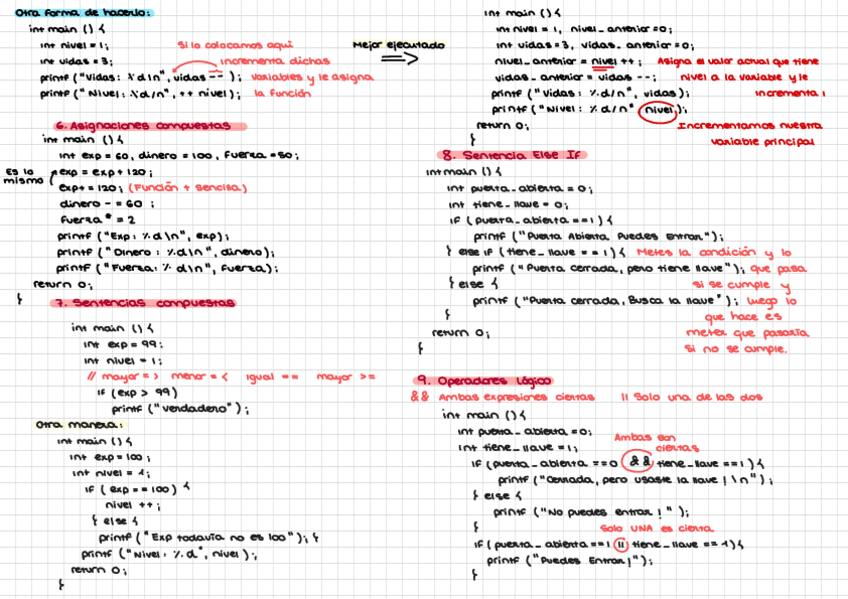 Otra forma de hacerlo:
int main () {
int nivel = 1;
int vidas = 3;
Si lo colocamos aqui
incrementa dichas
printf ("Vidas: %d\n", vidas -- ); variables y le asigna
printf ("Nivel: %d/n", ++ nivel); la función
Mejor ejecutado
6. Asignaciones compuestas
int main () {
int exp = 60, dinero = 100, fuerza = 50;
Es lo mismo
exp = exp + 120;
exp+ = 120; (Función + sencilla)
dinero - = 60 ;
fuerza * = 2
printf ("Exp: %d\n", exp);
printf ("Dinero: %d\n", dinero);
printf ("Fuerza: % d\n", fuerza);
return 0;
}
7. Sentencias compuestas
int main () {
int exp = 99;
int nivel = 1;
// mayor = > menor = < igual == mayor >=
if (exp > 99)
printf ("verdadero");
Otra manera:
int main () {
int exp = 100;
int nivel = 1;
if ( exp == 100) {
nivel ++ ;
} else {
printf ("Exp todavía no es 100"); }
printf ("Nivel: %.d", nivel);
return 0;
}
int main () {
int nivel = 1, nivel_anterior = 0;
int vidas = 3, vidas_anterior = 0;
nivel_anterior = nivel ++ ; Asigna el valor actual que tiene
vidas_anterior = vidas --; nivel a la variable y le
printf ("Vidas: %.d/n", vidas); incrementa 1
printf ("Nivel: %.d/n" nivel);
return 0; Incrementamos nuestra
} variable principal
8. Sentencia Else If
int main () {
int puerta_abierta = 0;
int tiene_llave = 0;
if ( puerta_abierta == 1) {
printf ("Puerta Abierta. Puedes Entrar");
} else if (tiene_llave == 1) { Metes la condición y lo
printf ("Puerta cerrada, pero tiene llave"); que pasa
} else { si se cumple y
printf ("Puerta cerrada, Busca la llave"); luego lo
} que hace es
return 0; meter que pasaría
} si no se cumple.
9. Operadores lógico
&& Ambas expresiones ciertas || Solo una de las dos
int main () {
int puerta_abierta = 0;
int tiene_llave = 1; Ambas son ciertas
if (puerta_abierta == 0 && tiene_llave == 1) {
printf ("Cerrada, pero usaste la llave ! \n");
} else {
printf ("No puedes entrar ! ");
} Solo UNA es cierta
if (puerta_abierta == 1 || tiene_llave == 1) {
printf ("Puedes Entrar!");
}